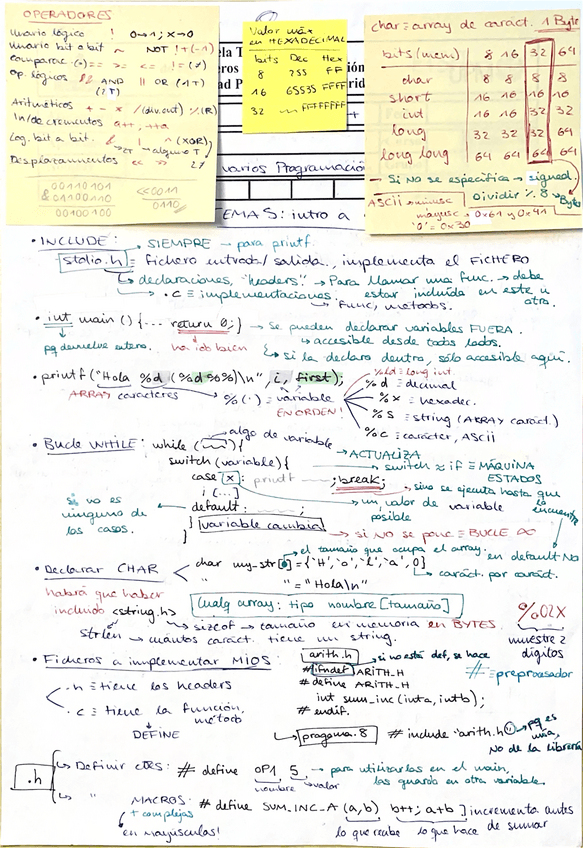 OPERADORES
Unario lógico ! 0→1; x→0
Unario bit a bit ~ NOT
comparac. == >= <= != (≠)
Op. lógicos && AND || OR
Aritméticos + - × / %(R)
In/decrementos a++, ++a
Log. bit a bit. & ^(XOR)
Desplazamientos << >>
00110101
&01100110
00100100
<<0011
0110
Valor máx
en HEXADECIMAL
bits Dec Hex
8 255 FF
16 65535 FFFF
32 FFFFFFFF
char = array de caráct. 1 Byte
bits (mem) 8 16 32 64
char 8 8 8 8
short 16 16 16 16
int 16 16 32 32
long 32 32 32 64
long long 64 64 64 64
- Si NO se especifica → signed.
Dividir %8 → Byte
ASCII minúsc
mayúsc → 0x61 y 0x41
'0' = 0x30
Programación
TEMA 5: intro a
• INCLUDE: SIEMPRE → para printf.
stdio.h ≡ fichero entrada/salida, implementa el FICHERO
↳ declaraciones, "headers" → Para llamar una func. → debe
• .c ≡ implementaciones. estar incluida en este u
↳ func, métodos. otro.
• int main () {... return 0;} → se pueden declarar variables FUERA.
pq devuelve entero. ha ido bien → accesible desde todos lados.
↳ si la declaro dentro, sólo accesible aquí.
• printf("Hola %d (%d%%)\n", i, first);
ARRAY caracteres
%(·) ≡ variable
EN ORDEN!
%ld ≡ long int.
%d ≡ decimal
%x ≡ hexadec.
%s ≡ string (ARRAY caráct.)
%c ≡ carácter, ASCII
• Bucle WHILE: while ( ) { algo de variable
→ ACTUALIZA
switch (variable) { switch ≈ if ≡ MÁQUINA
ESTADOS
case x: printf break; sino se ejecuta hasta que
i (...)
lo encuentre
un valor de variable
posible
default:
si no es
ninguno de
los casos.
} variable cambia → si NO se pone ≡ BUCLE ∞
en default NO
• Declarar CHAR
el tamaño que ocupa el array.
char my_str[ ] = {'H','o','l','a', 0}
↳ caráct. por caráct.
" " = "Hola\n"
habrá que haber
incluido <string.h>
Cualq array: tipo nombre [tamaño]
↳ sizeof → tamaño en memoria en BYTES.
strlen → cuántos caráct. tiene un string.
%02X
muestre 2
dígitos
• Ficheros a implementar MIOS
.h ≡ tiene los headers
.c ≡ tiene la función,
método
↳ DEFINE
arith.h
#ifndef ARITH_H → si no está def, se hace
# define ARITH_H
# ≡ preprocesador
int sum_inc (int a, int b);
# endif.
#include "arith.h" → pq es
mía,
NO de la librería
.h
↳ Definir ctes: # define OP1 5 → para utilizarlas en el main,
nombre valor las guardo en otra variable.
↳ " MACROS: # define SUM_INC_A (a,b) b++; a+b ] incrementa antes
+ complejas de sumar
en mayúsculas! lo que recibe lo que hace